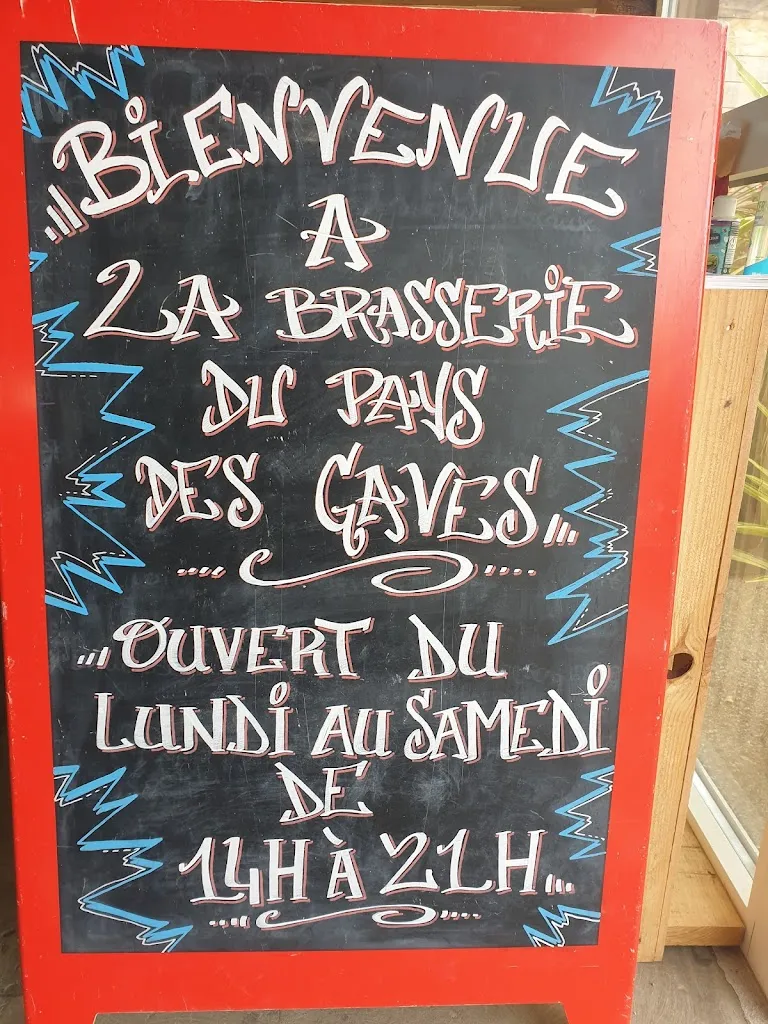 BIENVENUE
A
LA BRASSERIE
DU PAYS
DES GAVES
OUVERT DU
LUNDI AU SAMEDI
DE
14H À 21H